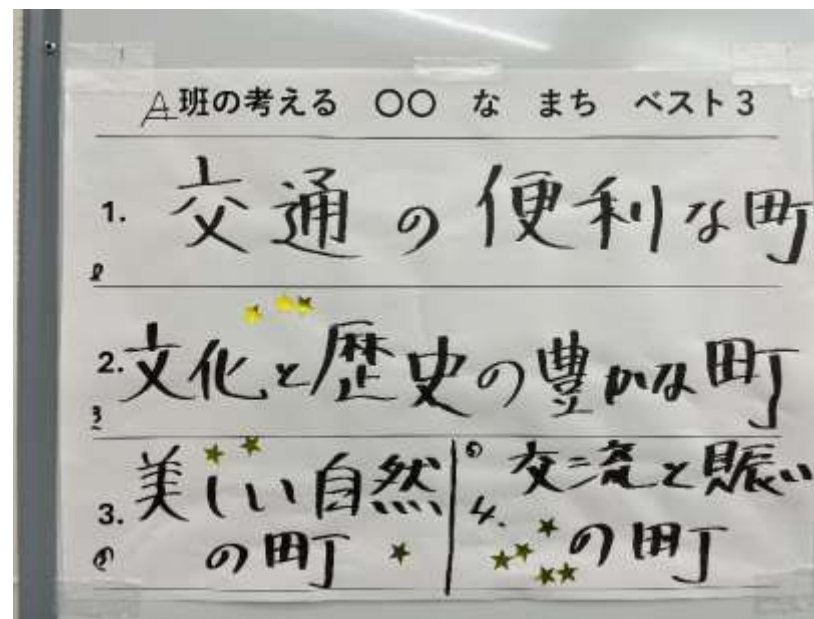 A班の考える ○○ な まち ベスト3
1. 交通の便利な町
2. 文化と歴史の豊かな町
3
3. 美しい自然
の町
4. 交流と賑い
の町